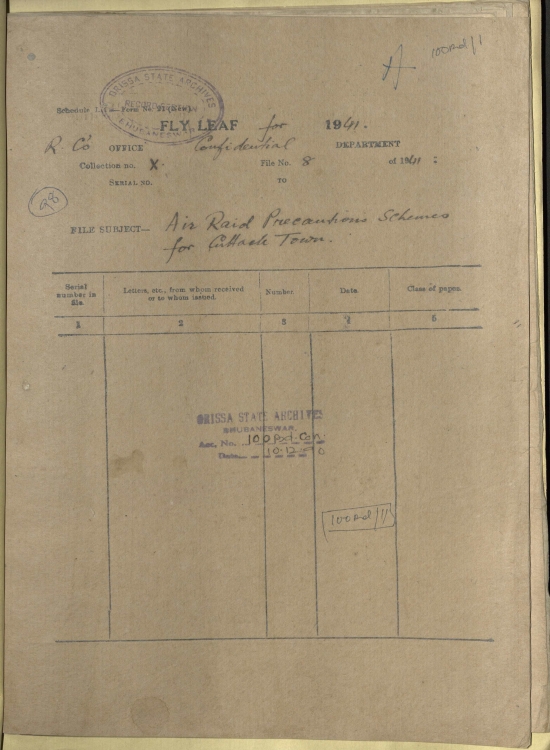 A
100Rd/1
ORISSA STATE ARCHIVES
BHUBANESWAR
Schedule Form No.
FLY LEAF for 1941.
R. Co OFFICE Confidential DEPARTMENT
Collection no. X. File No. 8 of 1941 :
SERIAL NO. TO
98
FILE SUBJECT— Air Raid Precautions Schemes
for Cuttack Town.
Serial number in file. Letters, etc., from whom received or to whom issued. Number. Date. Class of papers.
1 2 3 5
ORISSA STATE ARCHIVES
BHUBANESWAR
Acc. No. 100 Rd. Con.
Date 10.12.90
100Rd/1